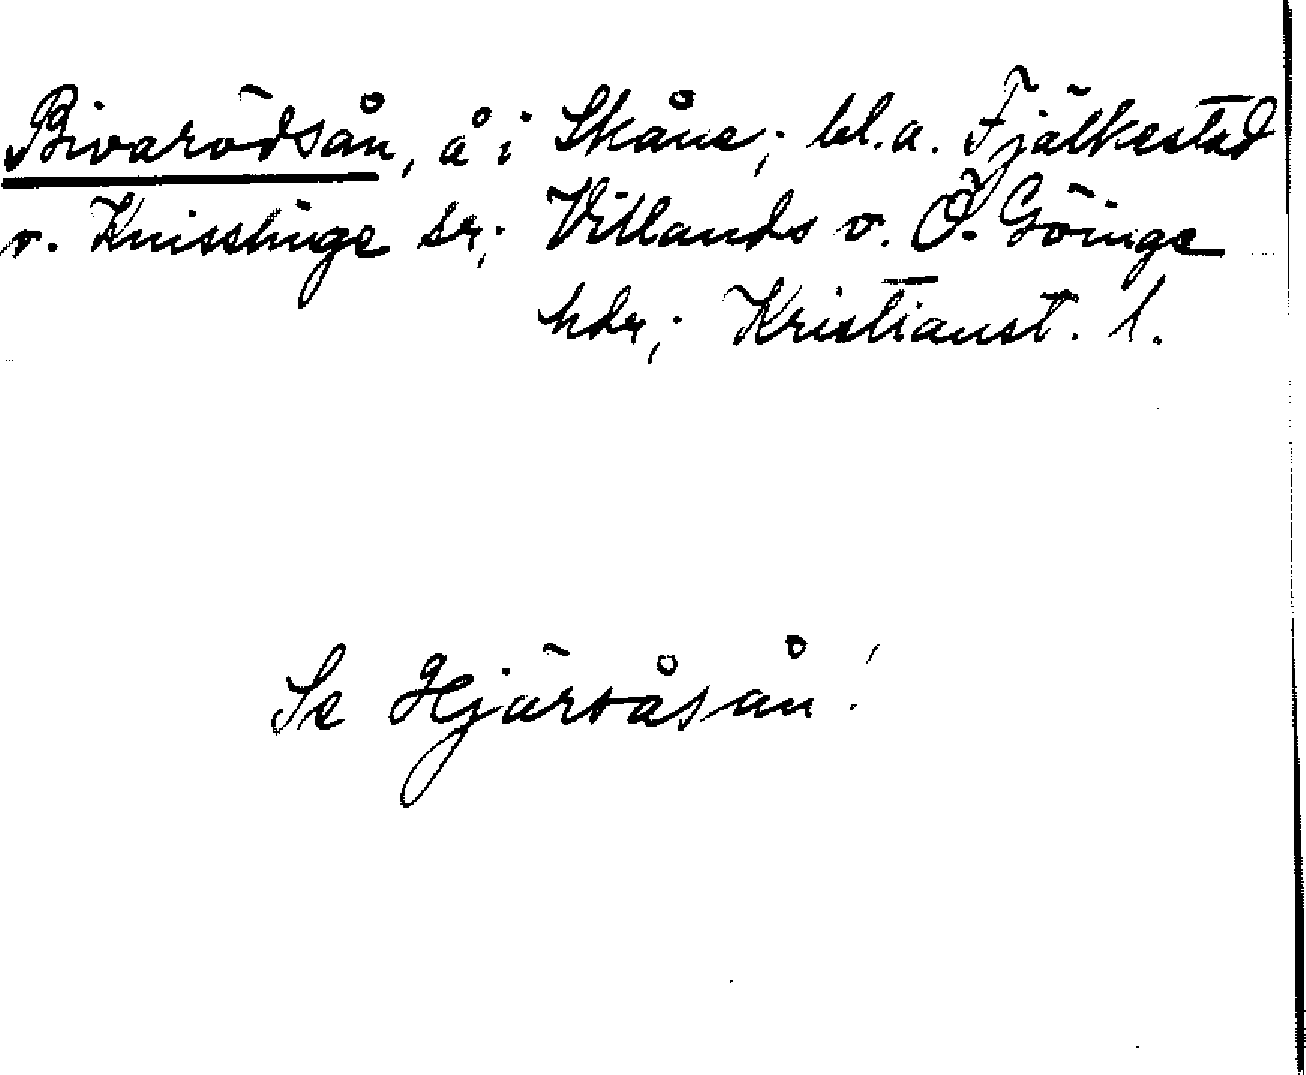 Bivarödsån, å i Skåne; bl.a. Fjälkestad
o. Knislinge sr; Villands o. Ö. Göinge
hdr; Kristianst. l.
Se Hjärsåsån!